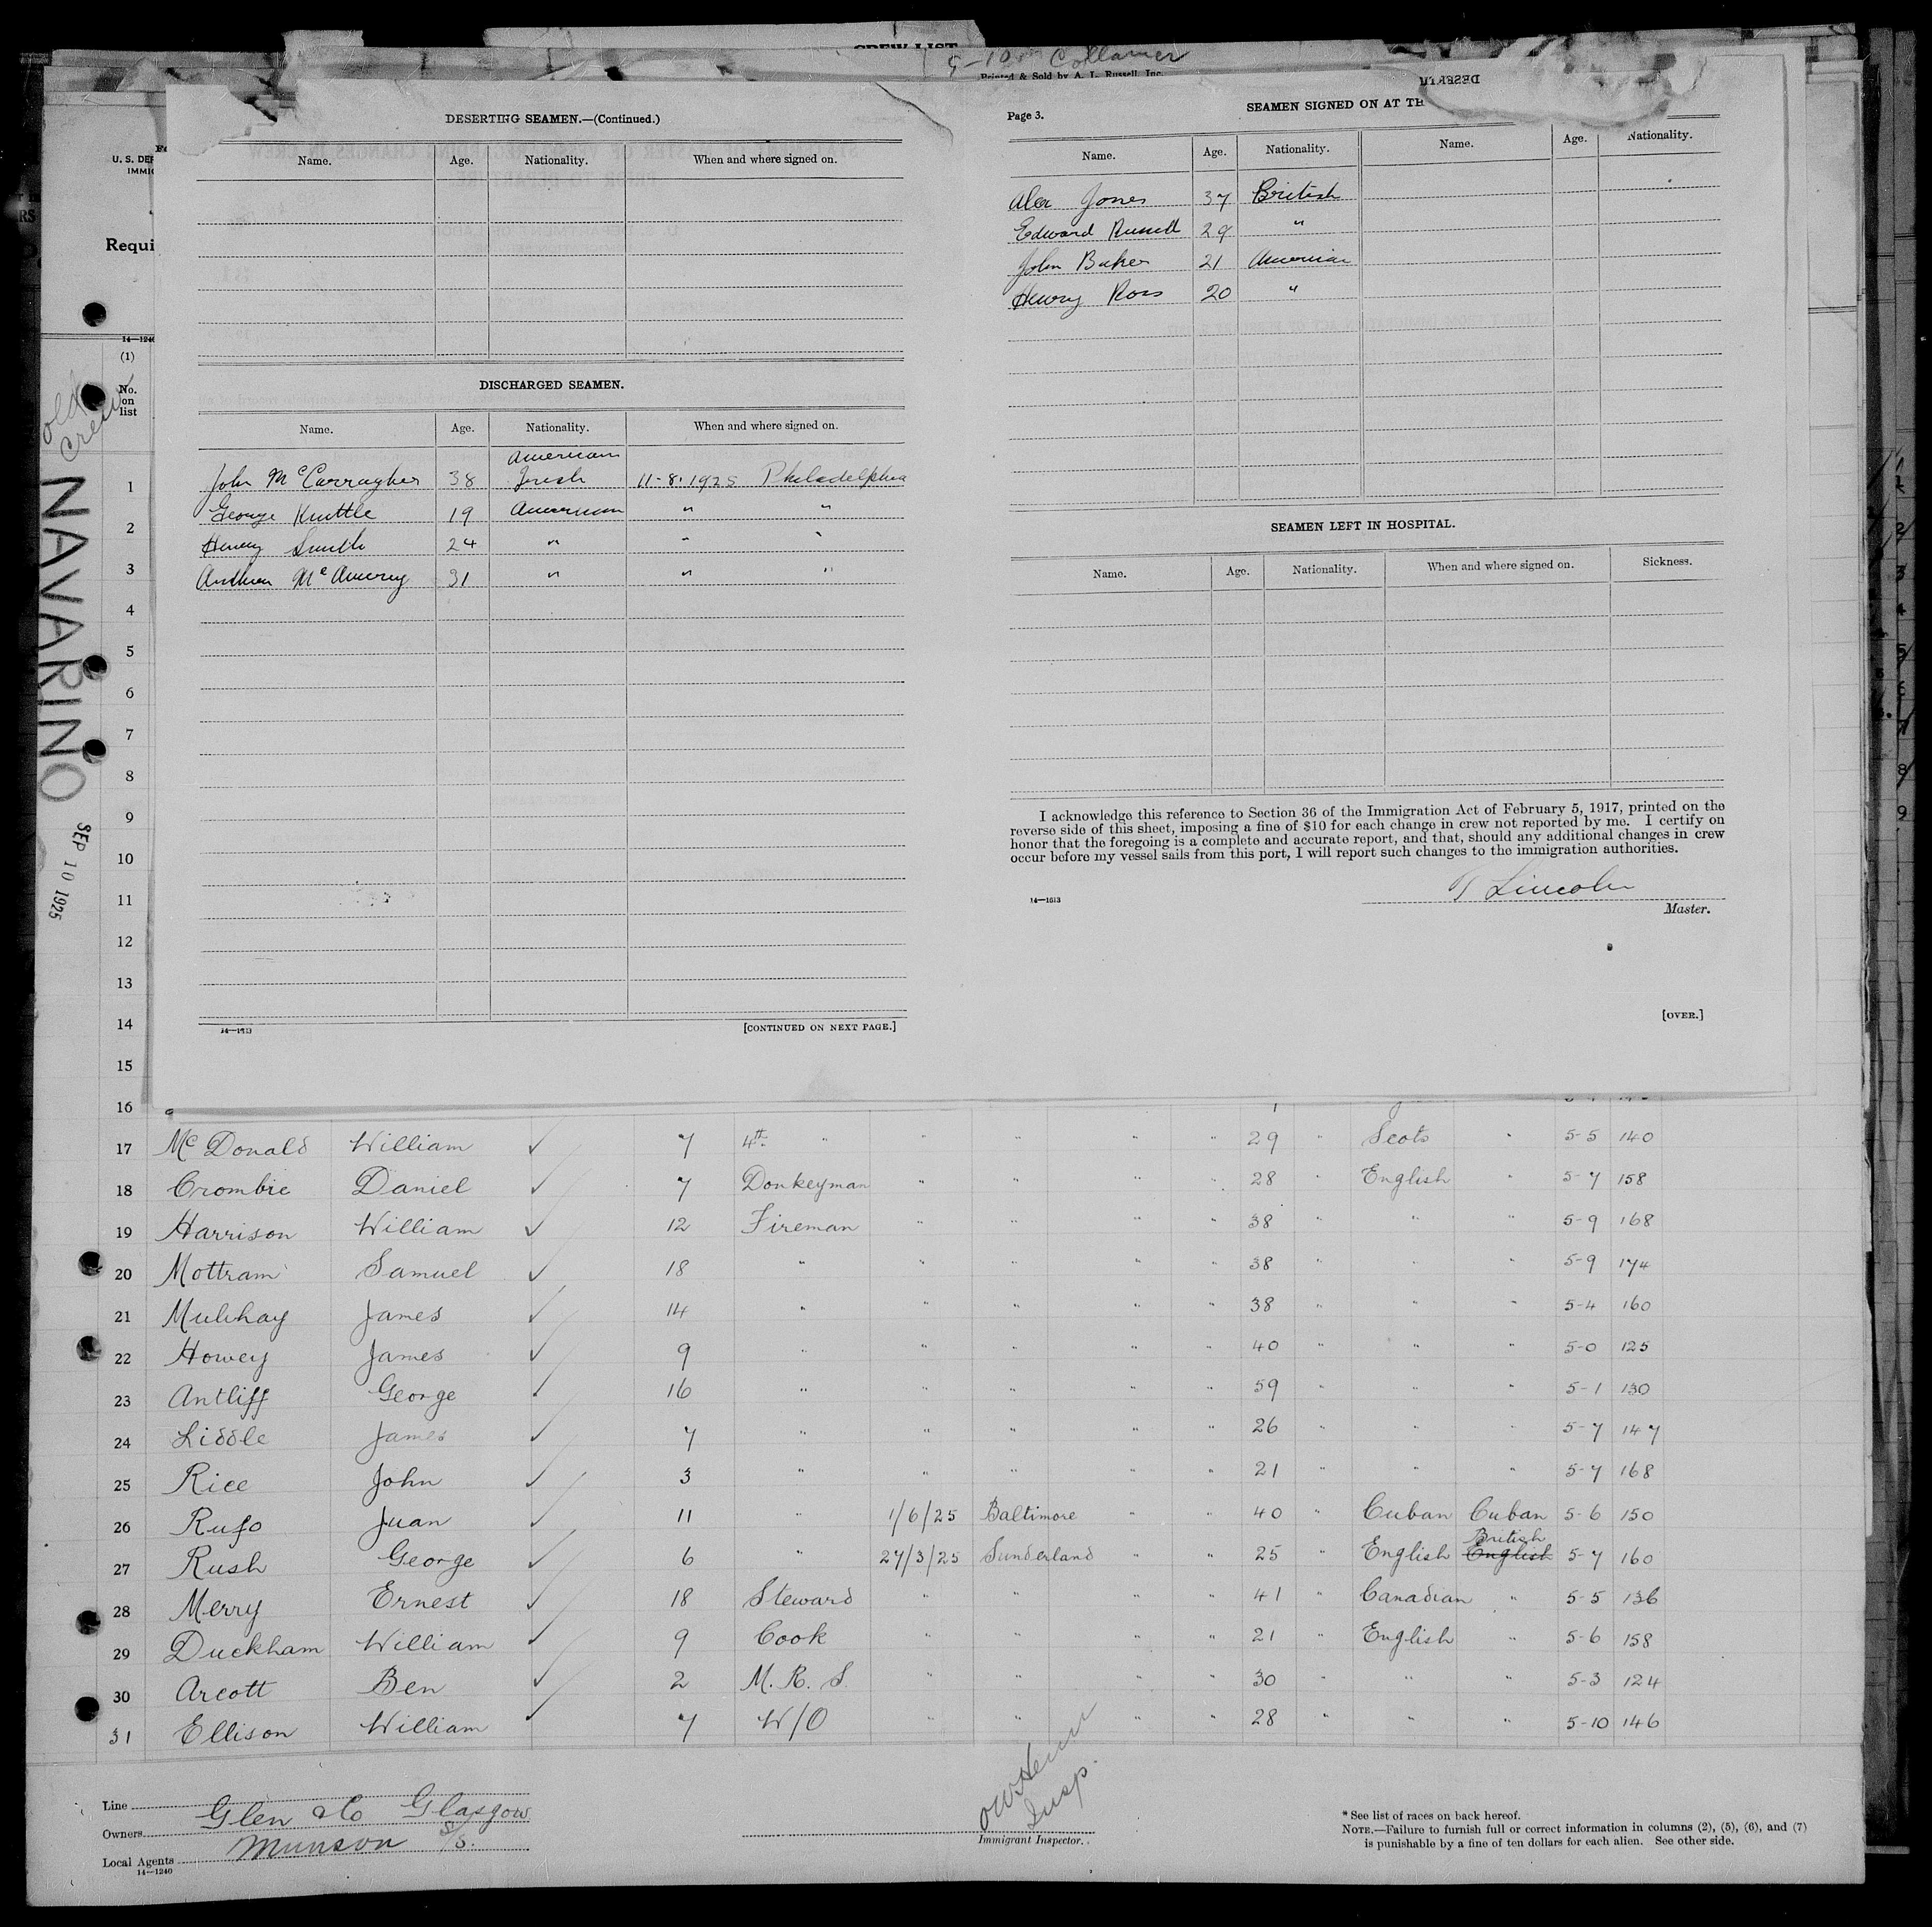 CREW LIST
5-10 Collamer
Printed & Sold by A. L. Russell, Inc.
U. S. DEP
IMMIG
Requi
14—1240
(1)
No.
on
list
old
crew
NAVARINO
SEP 10 1925
DESERTING SEAMEN.—(Continued.)
Name. Age. Nationality. When and where signed on.
DISCHARGED SEAMEN.
Name. Age. Nationality. When and where signed on.
American
John McCarragher 38 Irish 11-8-1925 Philadelphia
George Knuttle 19 American " "
Henry Smith 24 " " "
Andrew McAmery 31 " " "
14—1613
[CONTINUED ON NEXT PAGE.]
DESERTI
Page 3.
SEAMEN SIGNED ON AT TH
Name. Age. Nationality. Name. Age. Nationality.
Alex Jones 37 British
Edward Russell 29 "
John Baker 21 American
Henry Ross 20 "
SEAMEN LEFT IN HOSPITAL.
Name. Age. Nationality. When and where signed on. Sickness.
I acknowledge this reference to Section 36 of the Immigration Act of February 5, 1917, printed on the
reverse side of this sheet, imposing a fine of $10 for each change in crew not reported by me. I certify on
honor that the foregoing is a complete and accurate report, and that, should any additional changes in crew
occur before my vessel sails from this port, I will report such changes to the immigration authorities.
T Lincoln
14—1613
Master.
[OVER.]
1
2
3
4
5
6
7
8
9
10
11
12
13
14
15
16
17 McDonald William ✓ 7 4th " " " " " 29 " Scots " 5-5 140
18 Crombie Daniel ✓ 7 Donkeyman " " " " 28 " English " 5-7 158
19 Harrison William ✓ 12 Fireman " " " " 38 " " " 5-9 168
20 Mottram Samuel ✓ 18 " " " " " 38 " " " 5-9 174
21 Mulvhay James ✓ 14 " " " " " 38 " " " 5-4 160
22 Howey James ✓ 9 " " " " " 40 " " " 5-0 125
23 Antliff George ✓ 16 " " " " " 59 " " " 5-1 130
24 Liddle James ✓ 7 " " " " " 26 " " " 5-7 147
25 Rice John ✓ 3 " " " " " 21 " " " 5-7 168
26 Rufo Juan ✓ 11 " 1/6/25 Baltimore " " 40 " Cuban Cuban 5-6 150
27 Rush George ✓ 6 " 27/3/25 Sunderland " " 25 " English British English 5-7 160
28 Merry Ernest ✓ 18 Steward " " " " 41 " Canadian " 5-5 136
29 Duckham William ✓ 9 Cook " " " " 21 " English " 5-6 158
30 Arcott Ben ✓ 2 M. R. S. " " " " 30 " " " 5-3 124
31 Ellison William ✓ 7 W/O " " " " 28 " " " 5-10 146
Line
Owners Glen & Co Glasgow
Local Agents Munson S/S.
14—1240
Insp.
Immigrant Inspector.
* See list of races on back hereof.
NOTE.—Failure to furnish full or correct information in columns (2), (5), (6), and (7)
is punishable by a fine of ten dollars for each alien. See other side.